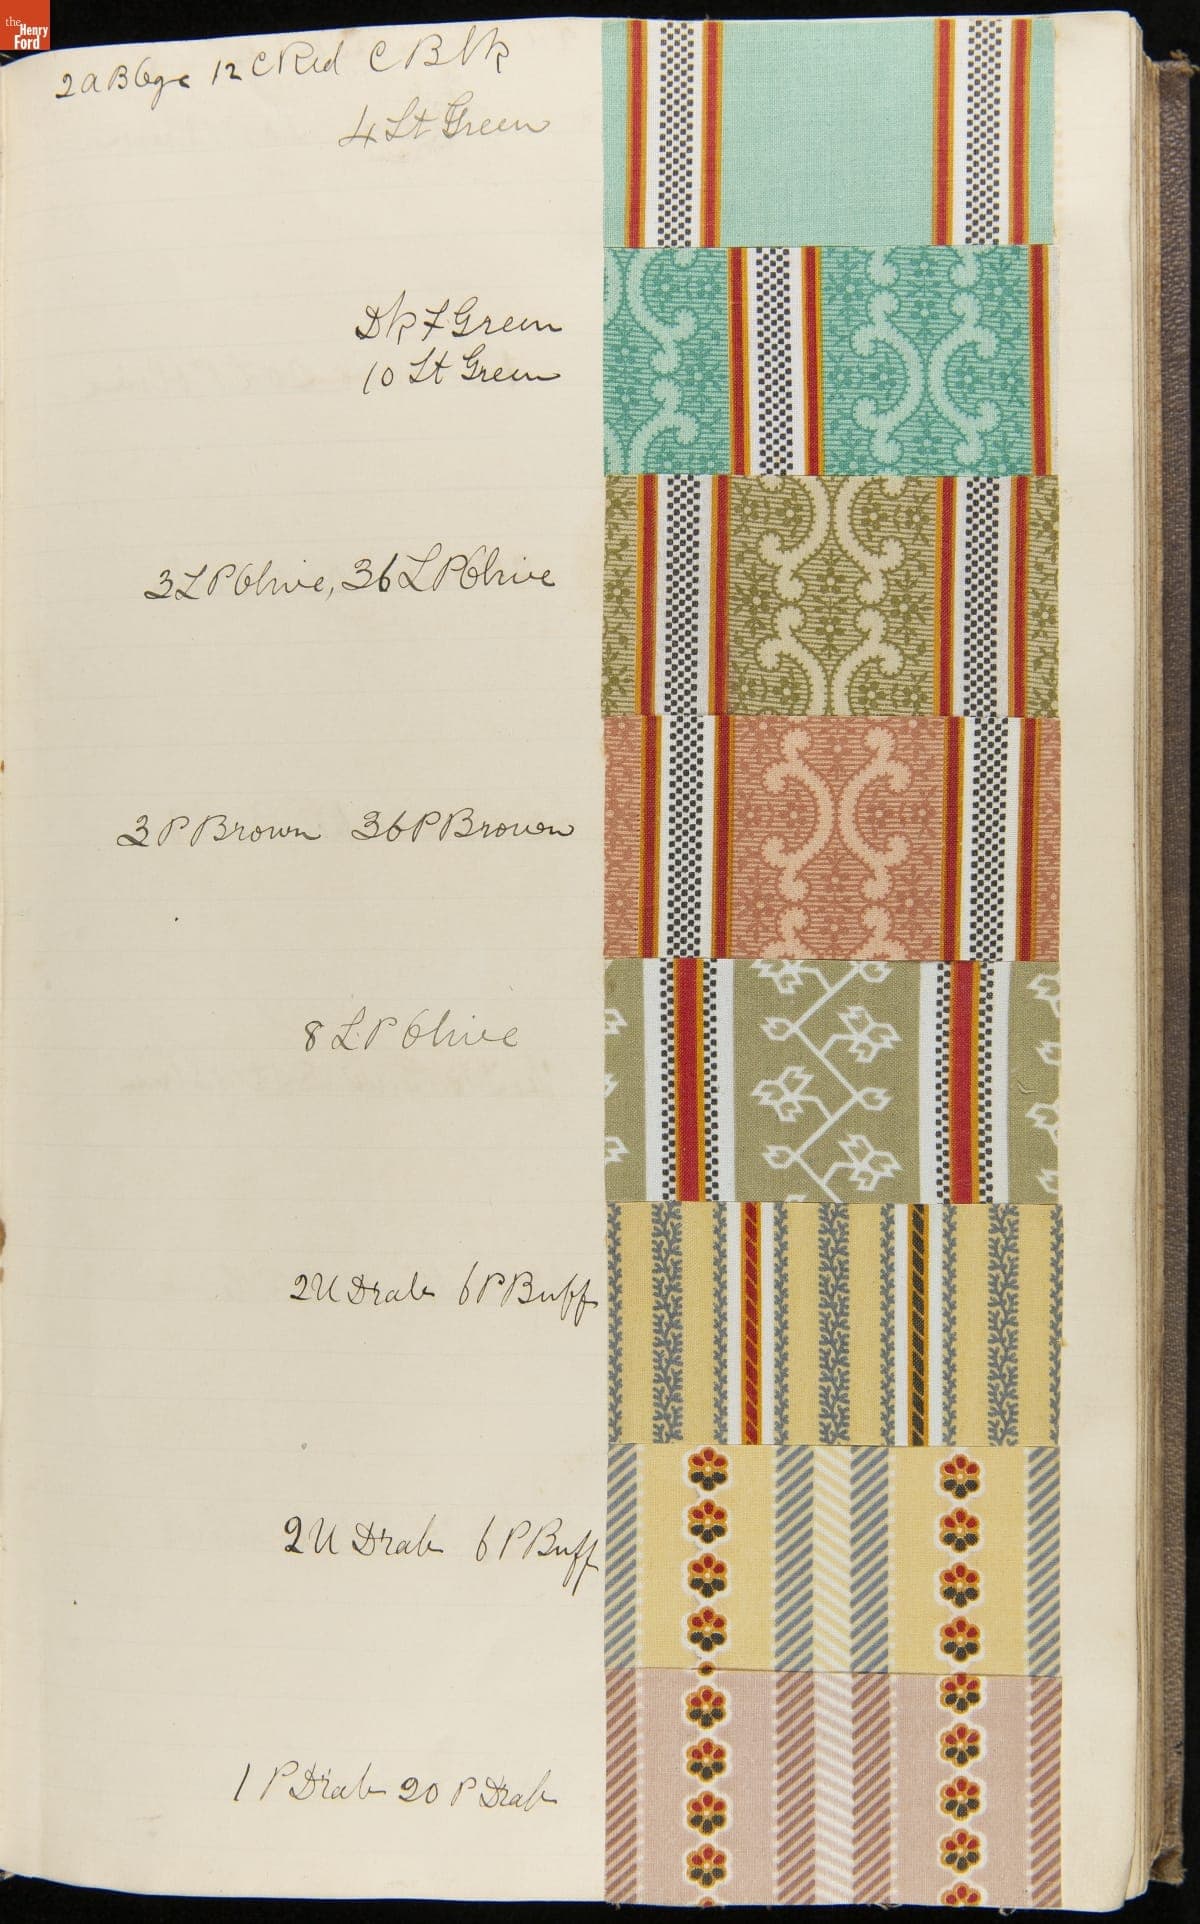 the Henry Ford
12 C Red C Blk
4 Lt Green
Dk 7 Green
10 Lt Green
3 L P Olive, 36 L P Olive
3 P Brown 36 P Brown
8 L P Olive
2 U Drab 6 P Buff
2 U Drab 6 P Buff
1 P Drab 20 P Drab